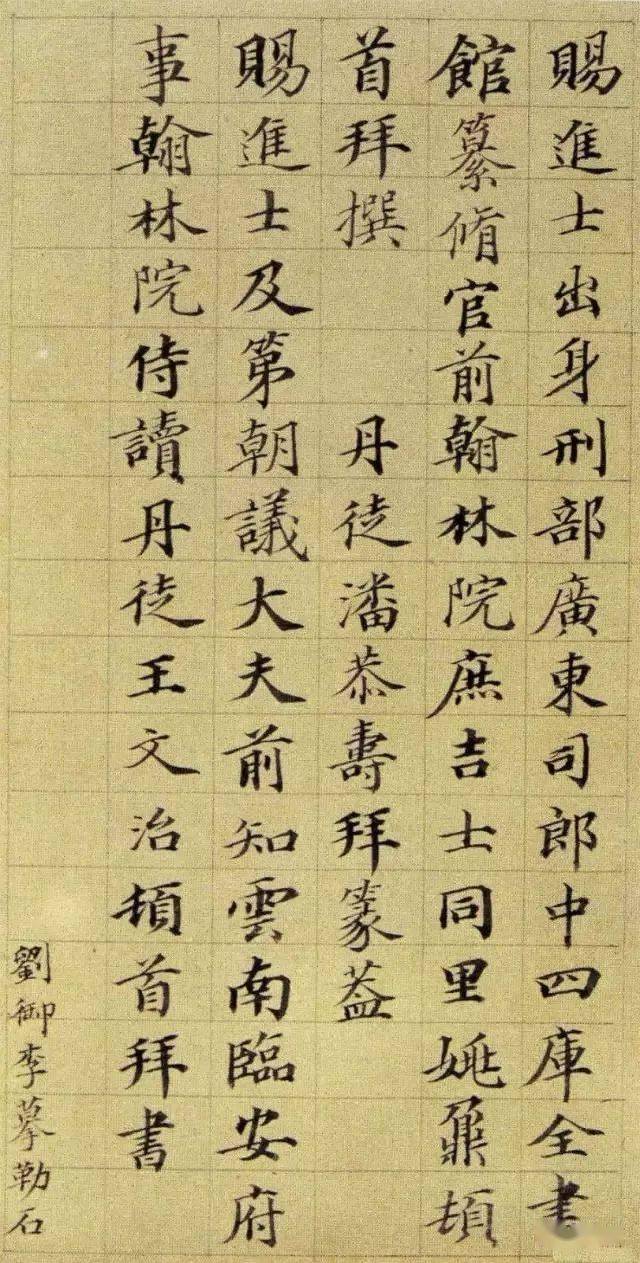 賜進士出身刑部廣東司郎中四庫全書
館纂脩官前翰林院庶吉士同里姚鼐頓
首拜撰　　丹徒潘恭壽拜篆蓋
賜進士及第朝議大夫前知雲南臨安府
事翰林院侍讀丹徒王文治頓首拜書
劉御李摹勒石